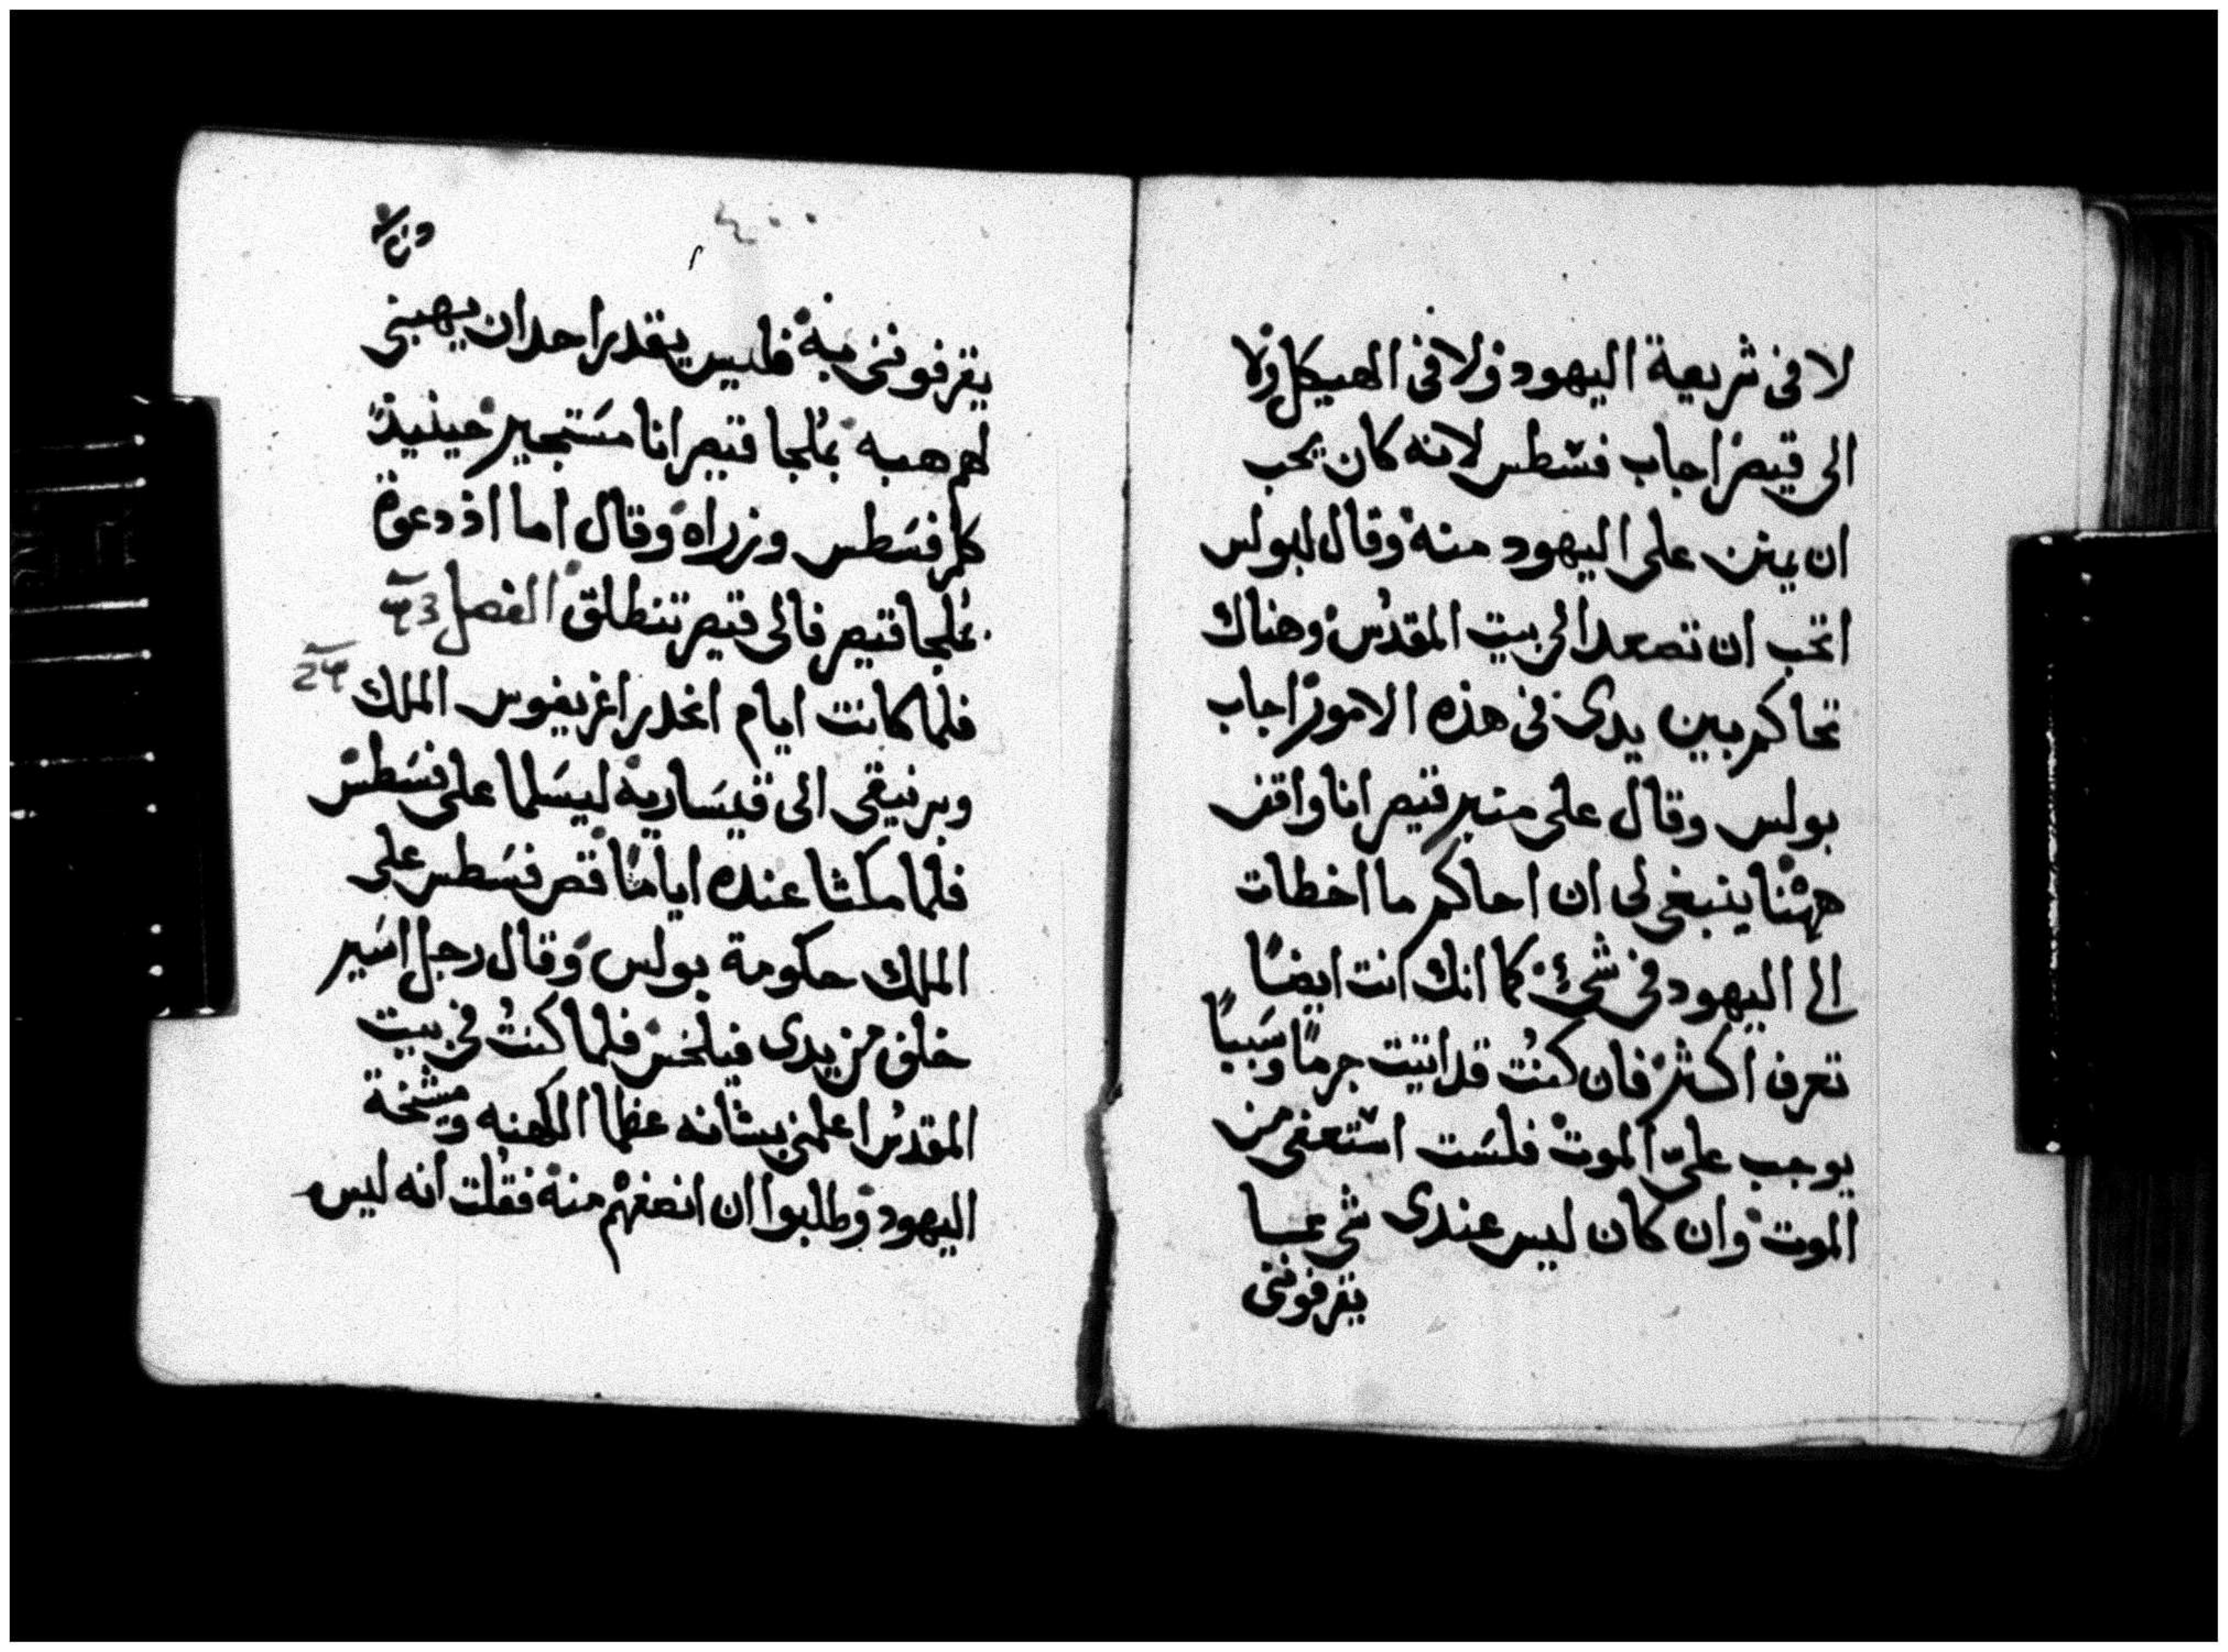 لا فى شريعة اليهود ولا فى الهيكل ولا
الى قيصر اجاب فسطس لانه كان يحب
ان يمنن على اليهود منه وقال لبولس
اتحب ان تصعد الى بيت المقدس وهناك
تحاكم بين يدى فى هذه الامور اجاب
بولس وقال على منبر قيصر انا واقف
ههنا ينبغى لى ان احاكم ما اخطات
الى اليهود فى شئ كما انك انت ايضًا
تعرف اكثر فان كنت قد اتيت جرمًا وسببًا
يوجب علىّ الموت فلست استعفى من
الموت وان كان ليس عندى شى مما
يقرفونى
يقرفوننى به فليس يقدر احد ان يهبنى
لهم هبه بملجا قيصر انا مستجير حينيذ
كلم فسطس وزراه وقال اما اذ دعوة
بملجا قيصر فالى قيصر تنطلق الفصل
فلما كانت ايام انحدر اغريفوس الملك
وبرنيقى الى قيساريه ليسلما على فسطس
فلما مكثا عنده ايامًا قص فسطس على
الملك حكومة بولس وقال رجل اسير
خلف من يدى فيلخس فلما كنت فى بيت
المقدس اعلمنى بشانه عظما الكهنه ومشخة
اليهود وطلبوا ان انصفهم منه فقلت انه ليس